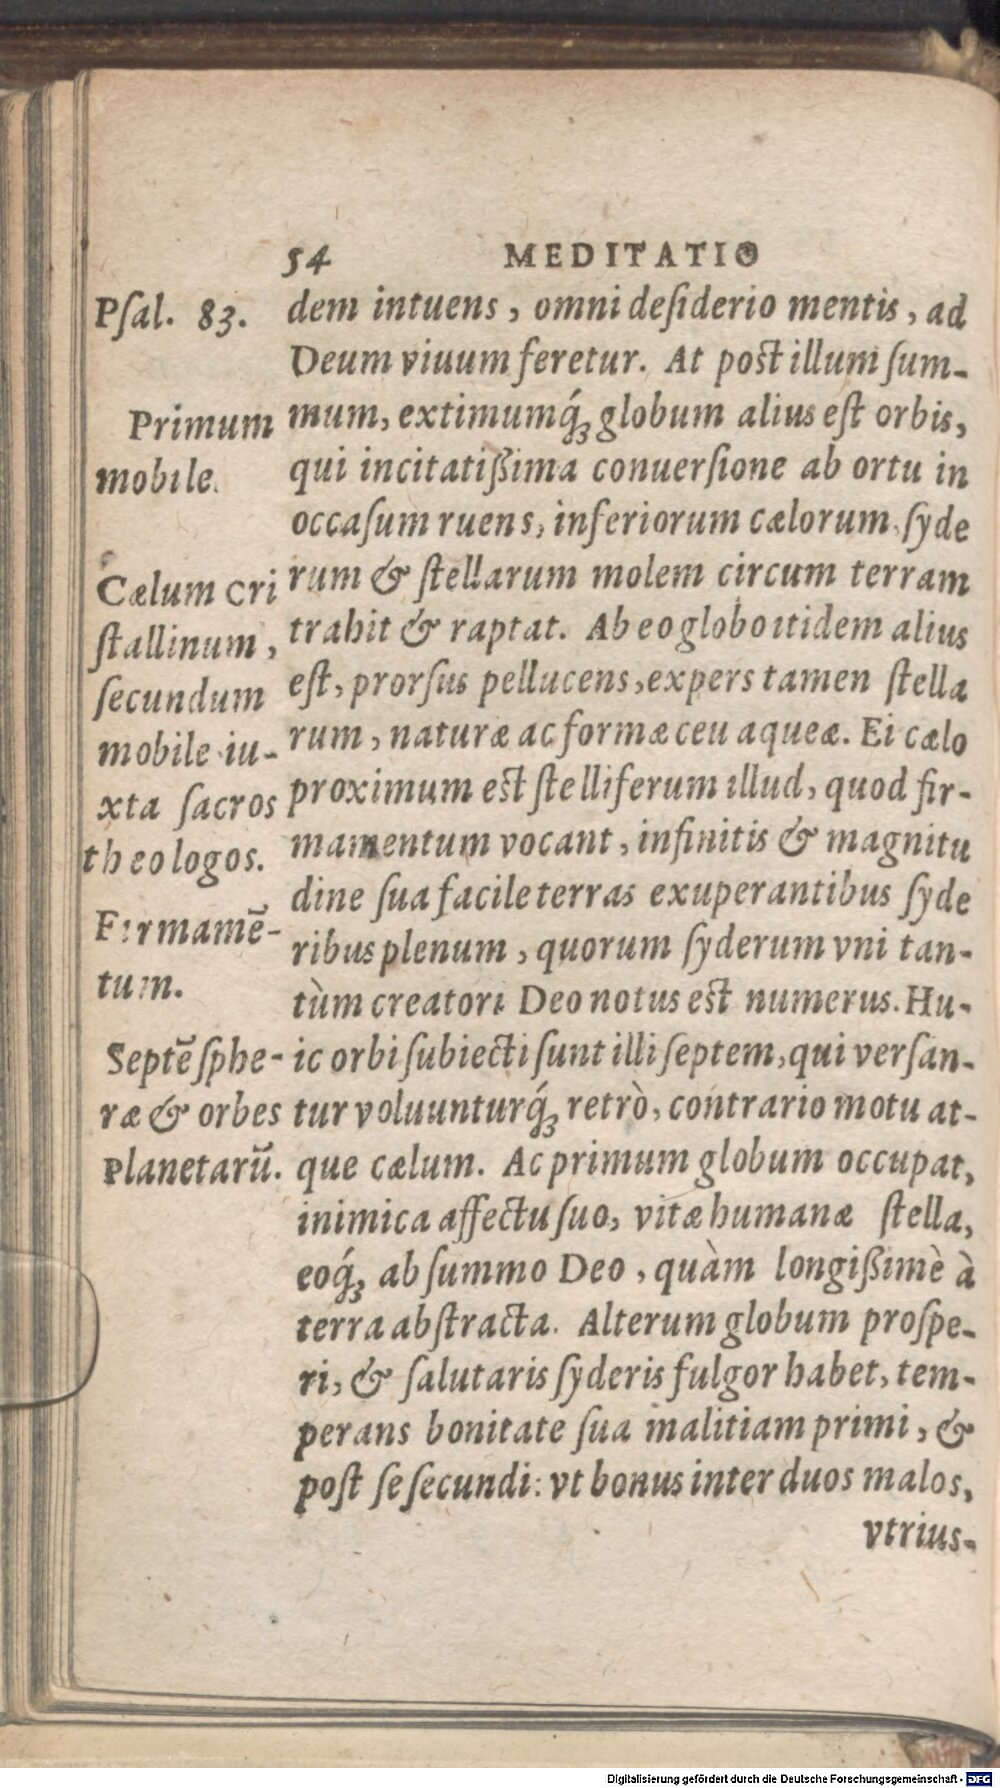 54 MEDITATIO
Pſal. 83.
dem intuens, omni deſiderio mentis, ad
Deum viuum feretur. At poſt illum ſum-
Primum
mum, extimumq́ꝫ globum alius eſt orbis,
mobile.
qui incitatißima conuerſione ab ortu in
occaſum ruens, inferiorum cælorum ſyde
Cælum Cri
rum & ſtellarum molem circum terram
ſtallinum,
trahit & raptat. Ab eo globo itidem alius
ſecundum
eſt, prorſus pellucens, expers tamen ſtella
mobile iu-
rum, naturæ ac formæ ceu aqueæ. Ei cælo
xta ſacros
proximum eſt ſtelliferum illud, quod fir-
theologos.
mamentum vocant, infinitis & magnitu
dine ſua facile terras exuperantibus ſyde
Firmamē-
ribus plenum, quorum ſyderum vni tan-
tum.
tùm creatori Deo notus eſt numerus. Hu-
Septē ſphe-
ic orbi ſubiecti ſunt illi ſeptem, qui verſan-
ræ & orbes
tur voluunturq́ꝫ retrò, contrario motu at-
Planetarū.
que cælum. Ac primum globum occupat,
inimica affectu ſuo, vitæ humanæ ſtella,
eoq́ꝫ ab ſummo Deo, quàm longißimè à
terra abſtracta. Alterum globum proſpe-
ri, & ſalutaris ſyderis fulgor habet, tem-
perans bonitate ſua malitiam primi, &
poſt ſe ſecundi: vt bonus inter duos malos,
vtrius-
Digitalisierung gefördert durch die Deutsche Forschungsgemeinschaft - DFG